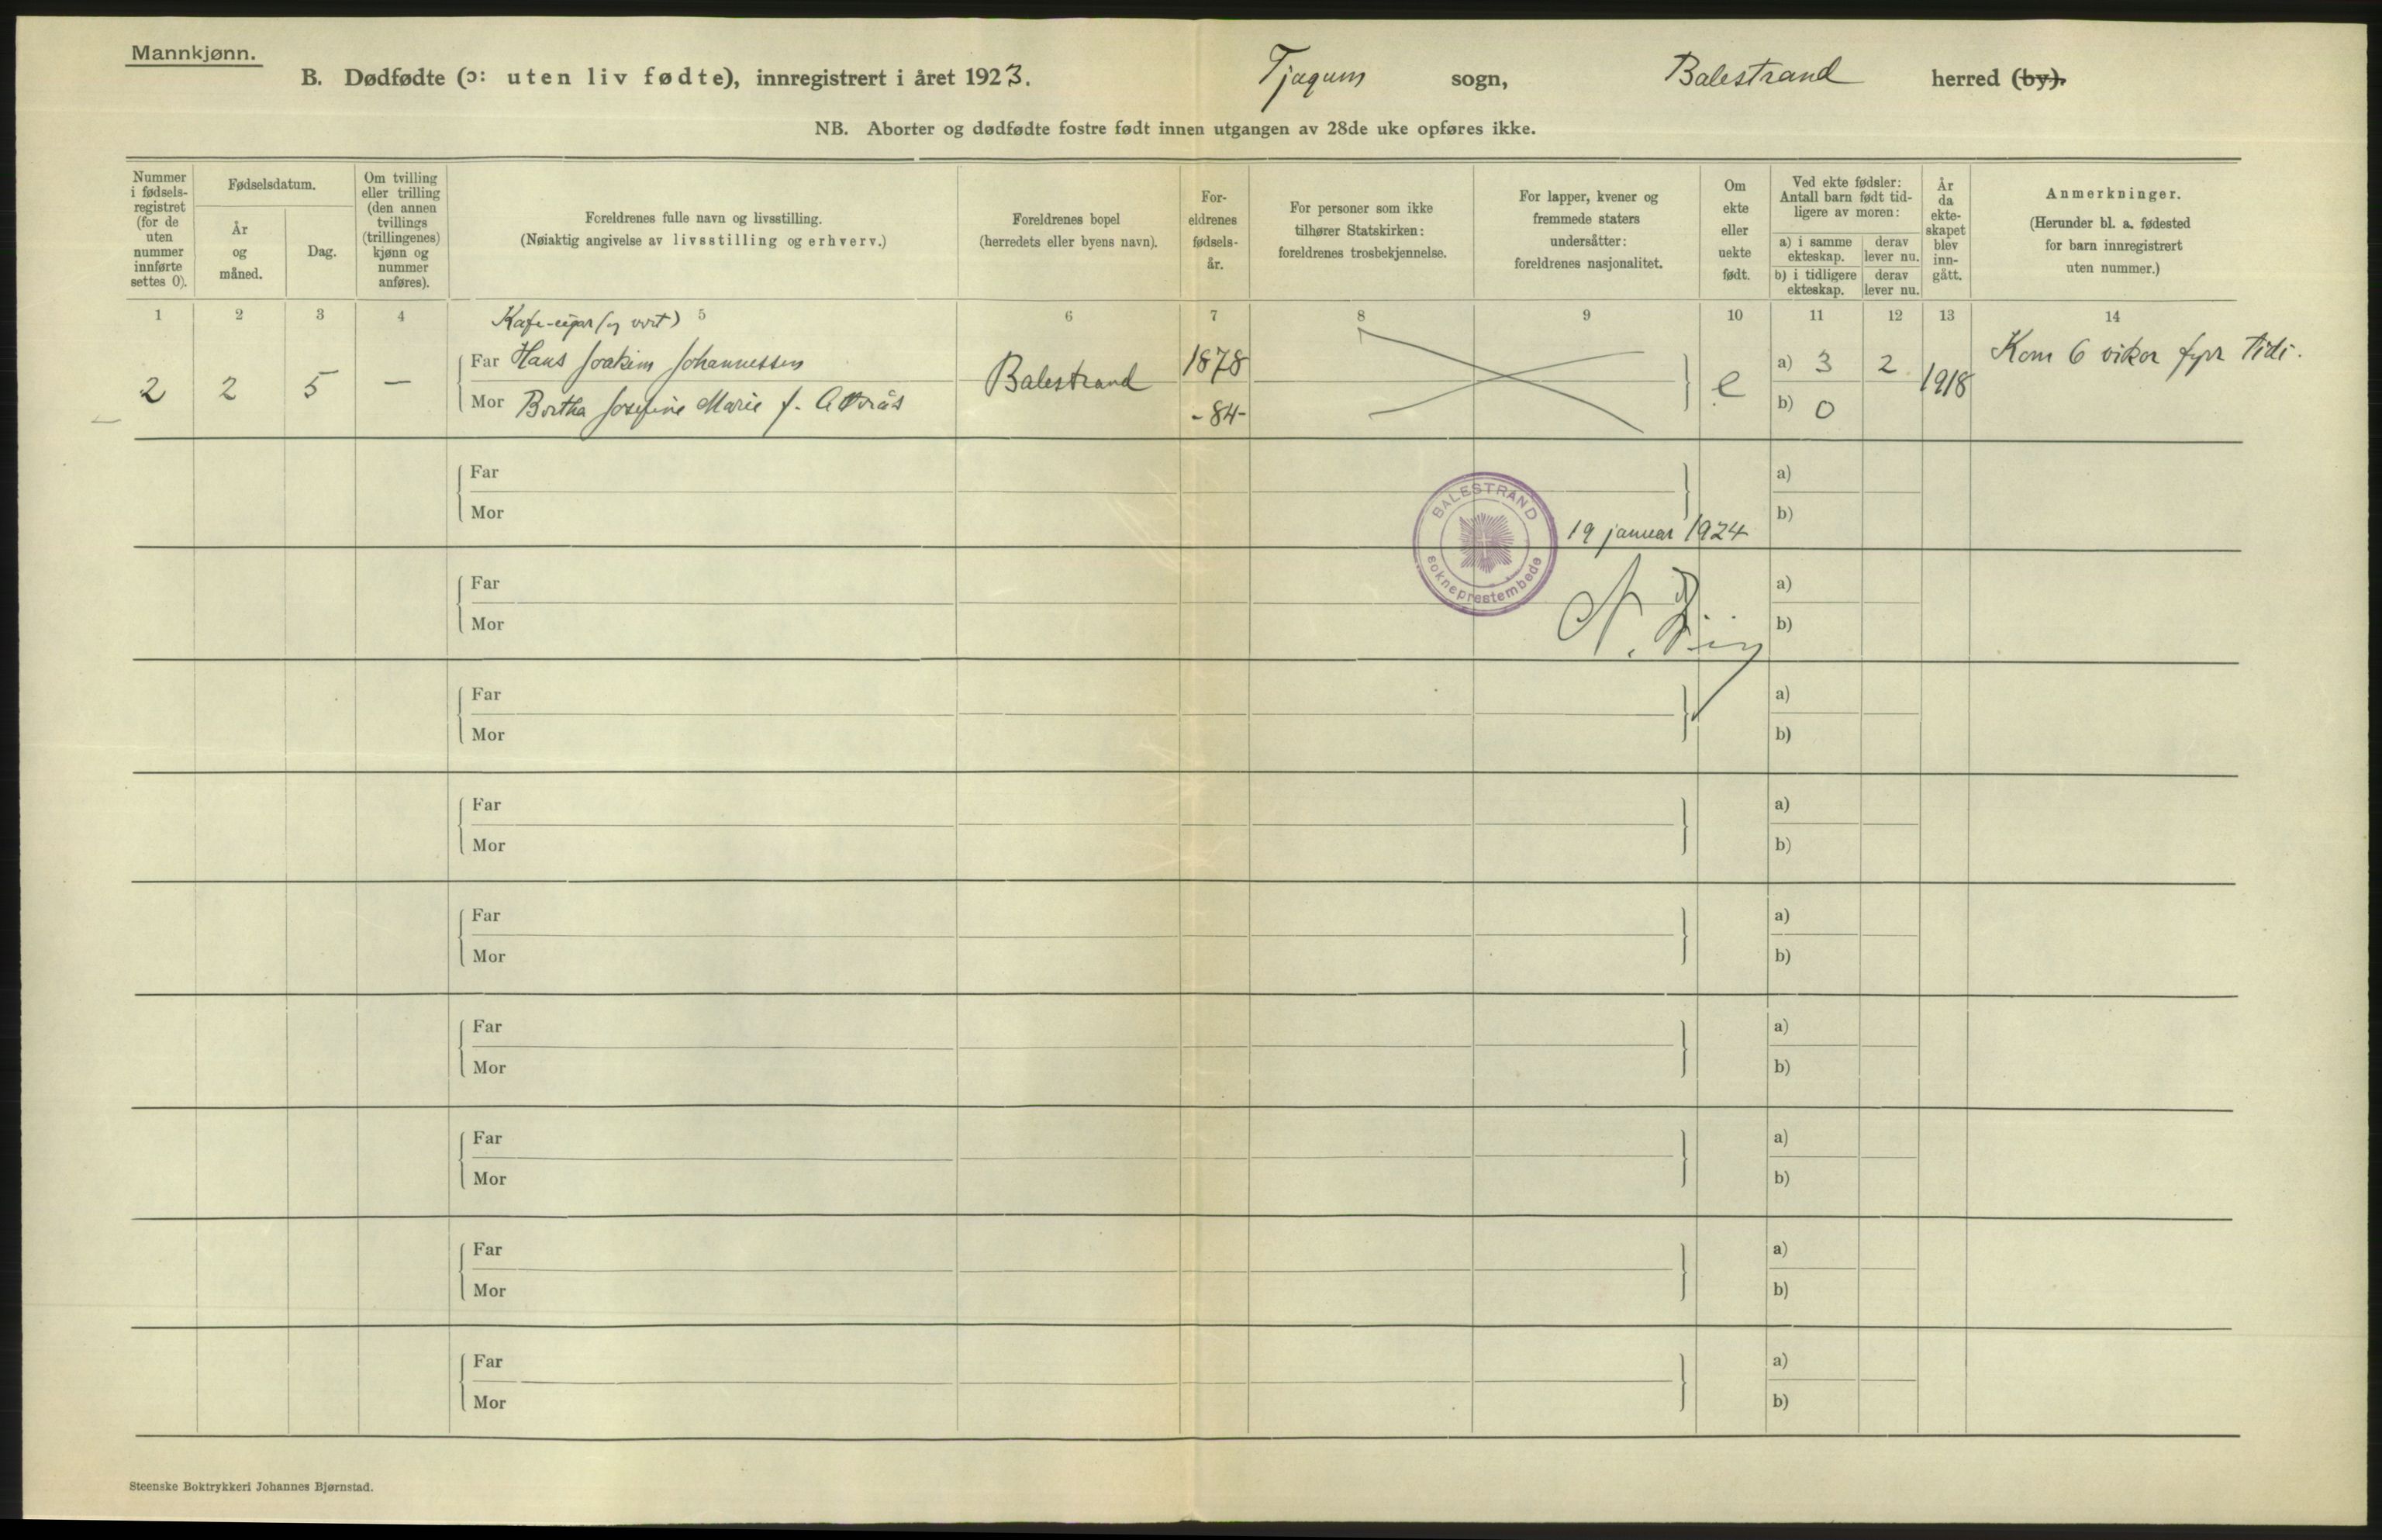 Mannkjønn.
B. Dødfødte (ɔ: uten liv fødte), innregistrert i året 1923. Tjugum sogn, Balestrand herred (by).
NB. Aborter og dødfødte fostre født innen utgangen av 28de uke opføres ikke.
Nummer i fødsels-registret (for de uten nummer innførte settes 0).
Fødselsdatum.
År og måned.
Dag.
Om tvilling eller trilling (den annen tvillings (trillingenes) kjønn og nummer anføres).
Foreldrenes fulle navn og livsstilling.
(Nøiaktig angivelse av livsstilling og erhverv.)
Foreldrenes bopel
(herredets eller byens navn).
For-eldrenes fødsels-år.
For personer som ikke tilhører Statskirken: foreldrenes trosbekjennelse.
For lapper, kvener og fremmede staters undersåtter: foreldrenes nasjonalitet.
Om ekte eller uekte født.
Ved ekte fødsler: Antall barn født tid-ligere av moren:
a) i samme ekteskap.
derav lever nu.
b) i tidligere ekteskap.
derav lever nu.
År da ekte-skapet blev inn-gått.
Anmerkninger.
(Herunder bl. a. fødested for barn innregistrert uten nummer.)
1 2 3 4 5 6 7 8 9 10 11 12 13 14
Kafe-eigar (og vert)
2 2 5 — Far Hans Joakim Johannessen Balestrand 1878 e a) 3 2 1918 Kom 6 vikor fyrr tidi.
Mor Bertha Josefine Marie f. -84- b) 0
Far a)
Mor b)
BALESTRAND
sokneprestembede
19 januar 1924
Far a)
Mor b)
N.
Far a)
Mor b)
Far a)
Mor b)
Far a)
Mor b)
Far a)
Mor b)
Far a)
Mor b)
Far a)
Mor b)
Far a)
Mor b)
Steenske Boktrykkeri Johannes Bjørnstad.